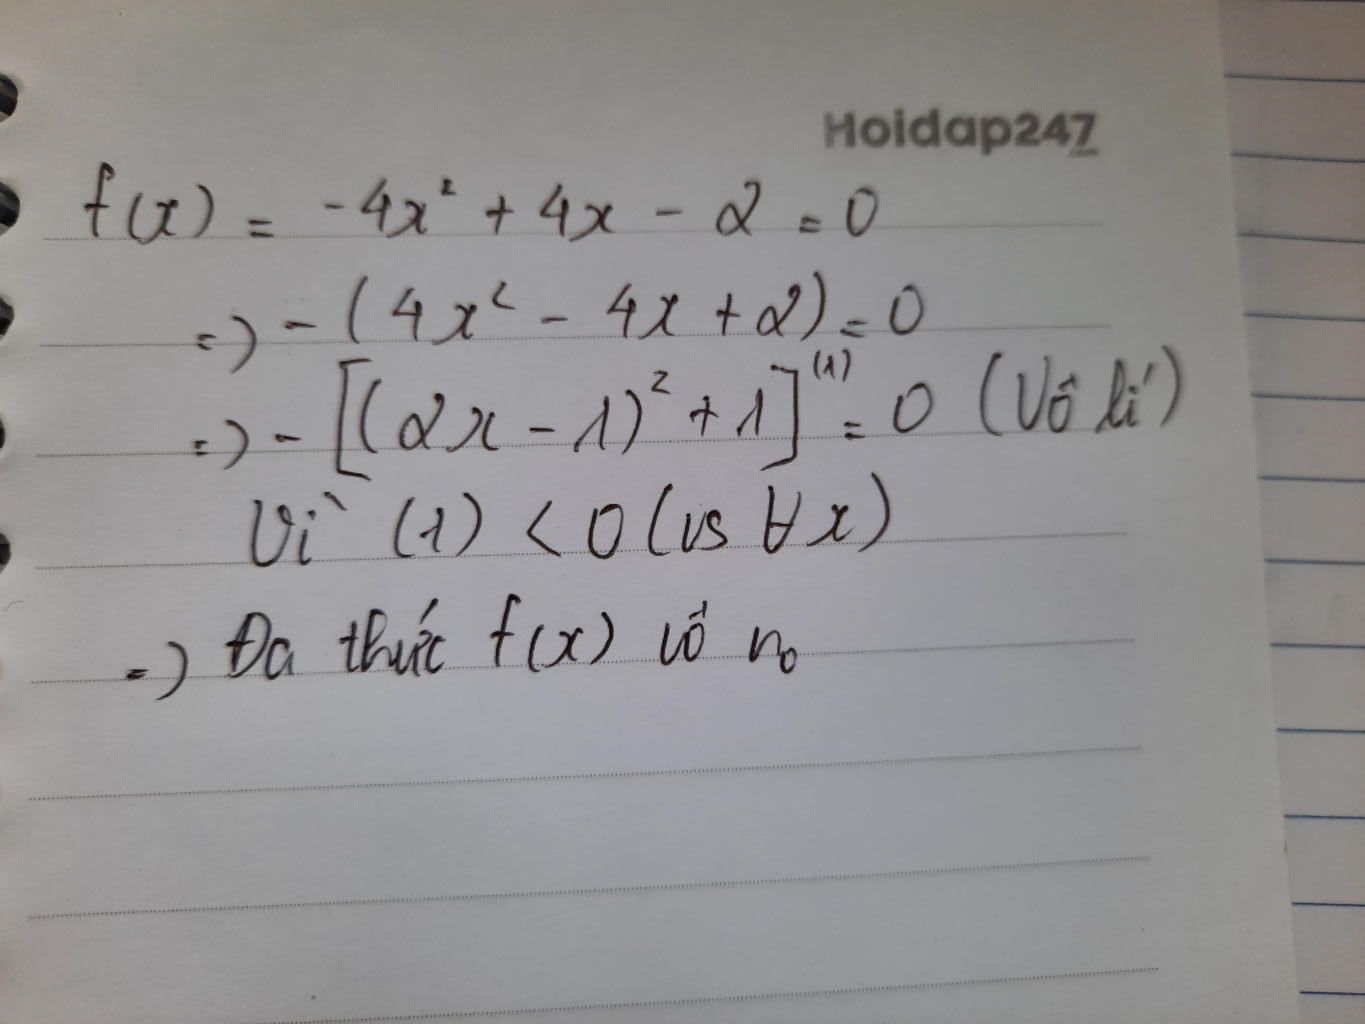 Hoidap247
f(x) = -4x² + 4x - 2 = 0
=) - (4x² - 4x + 2) = 0
=) - [(2x - 1)² + 1]⁽¹⁾ = 0 (Vô lí)
Vì (1) < 0 (vs ∀x)
=) Đa thức f(x) vô n₀